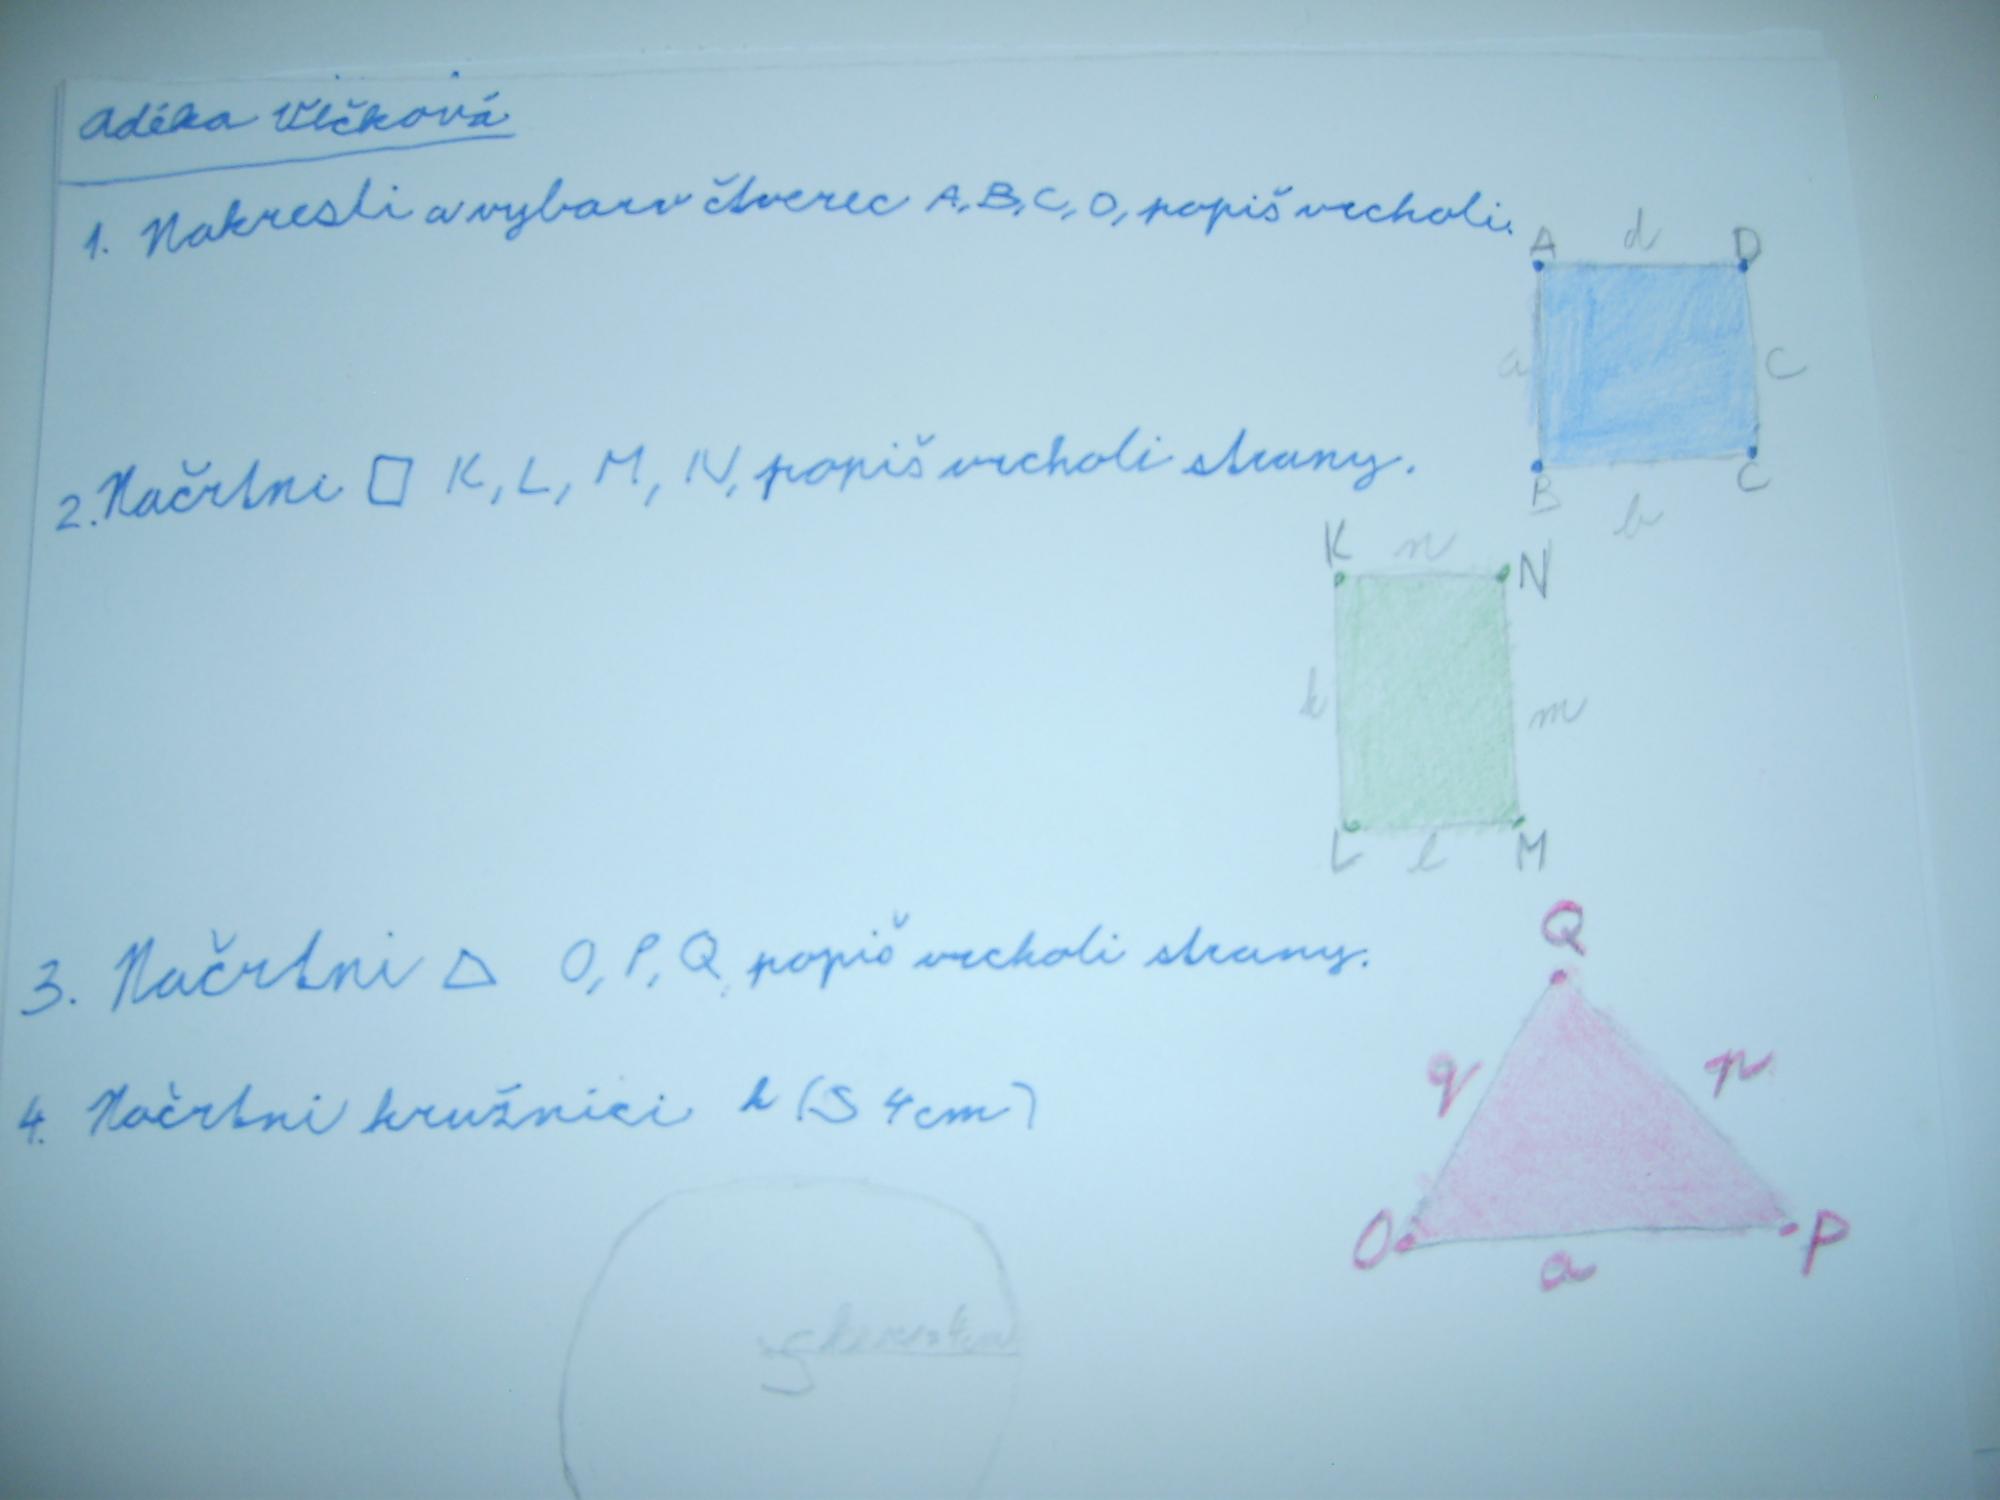 Adélka Vlčková
1. Nakresli a vybarv čtverec A, B, C, D, popiš vrcholi.
A d D
a C
B b C
2. Načrtni □ K, L, M, N, popiš vrcholi strany.
K n N
k m
L l M
3. Načrtni △ O, P, Q, popiš vrcholi strany.
Q
q p
O a P
4. Načrtni kružnici k (S 4cm)
S